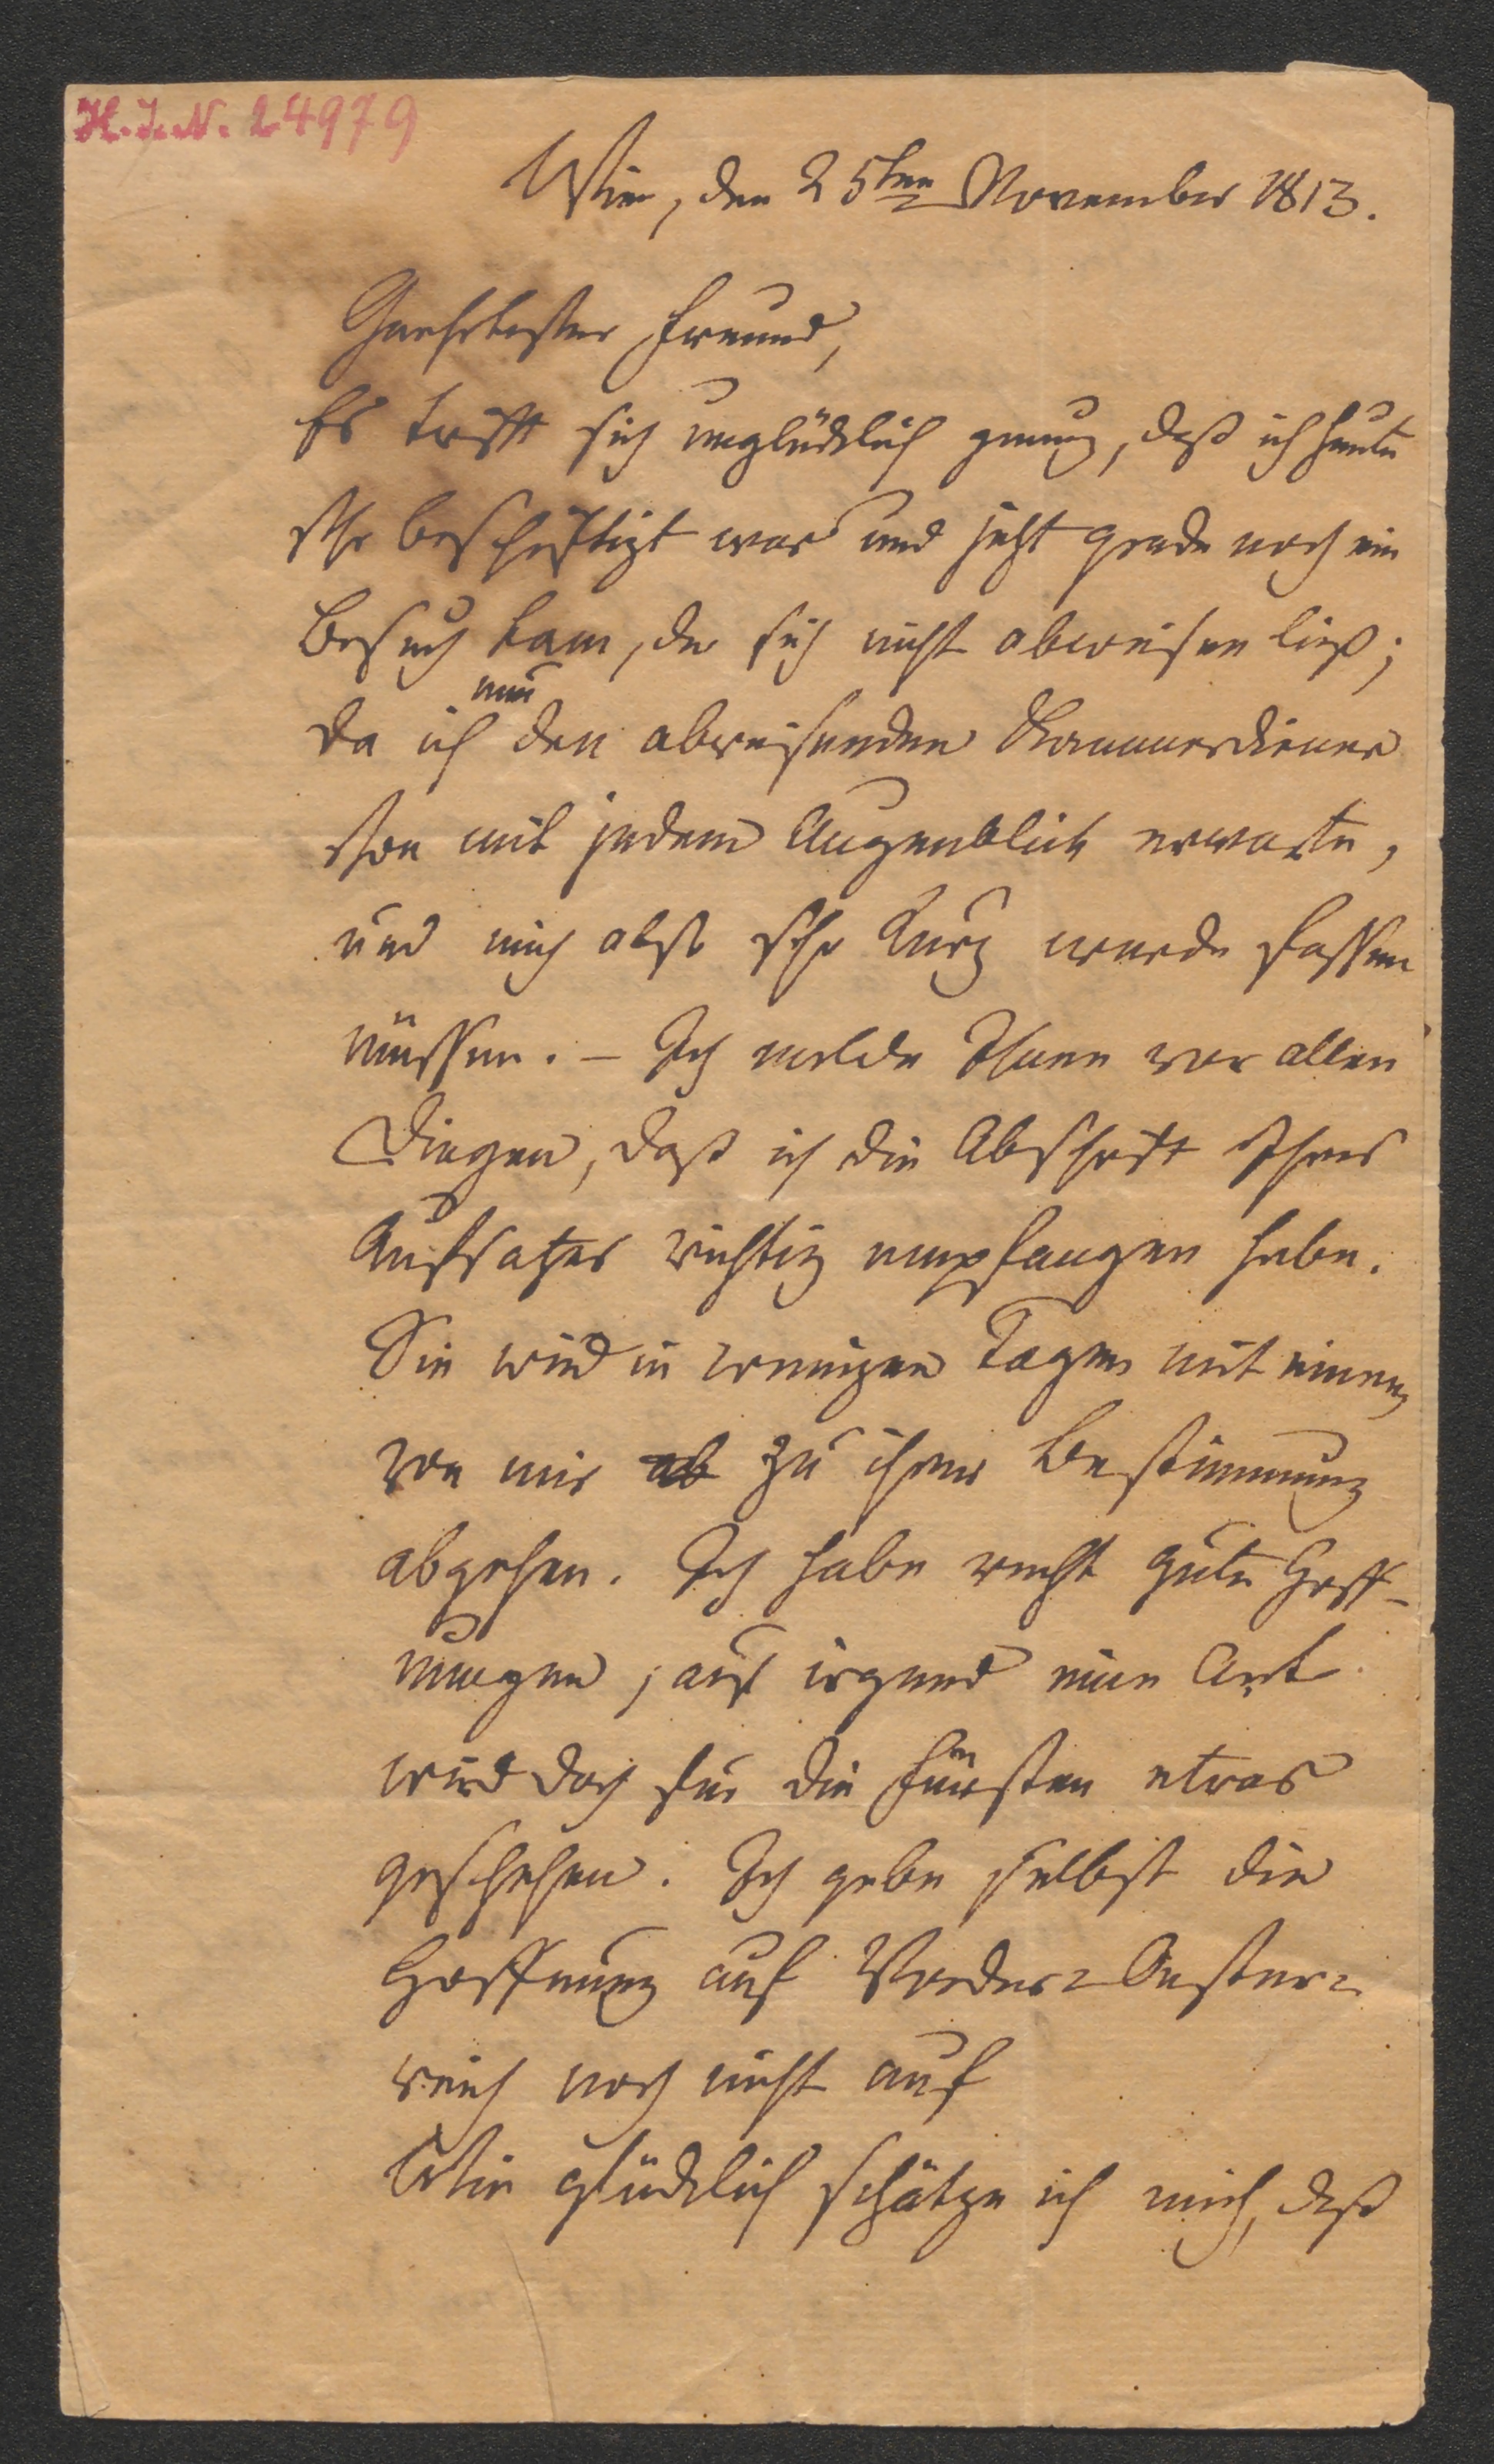 H. I. N. 24979
Wien, den 25ten November 1813.
Geehrtester Freund,
Es trifft sich unglücklich genug, daß ich heute
sehr beschäftigt war und jetzt grade noch ein
Besuch kam, der sich nicht abweisen ließ;
nun
da ich den abreisenden Kammerdiener
schon mit jedem Augenblick erwarte,
und mich also sehr kurz werde fassen
müssen. – Ich melde Ihnen vor allen
Dingen, daß ich die Abschrift Ihres
Aufsatzes richtig empfangen habe.
Sie wird in wenigen Tagen mit einem
von mir ab zu ihrer Bestimmung
abgehen. Ich habe recht gute Hoff-
nungen; auf irgend eine Art
wird doch für die Fürsten etwas
geschehen. Ich gebe selbst die
Hoffnung auf Vorder-Oester-
reich noch nicht auf
Wie glücklich schätze ich mich, daß